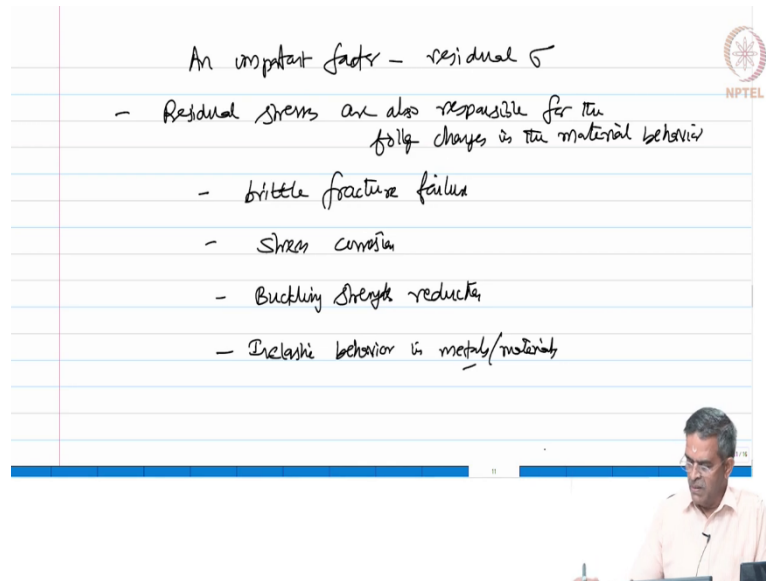 An important factor - residual σ
NPTEL
- Residual stresses are also responsible for the
follg changes in the material behavior
- brittle fracture failure
- stress corrosion
- Buckling strength reduction
- Inelastic behavior in metals/materials
11